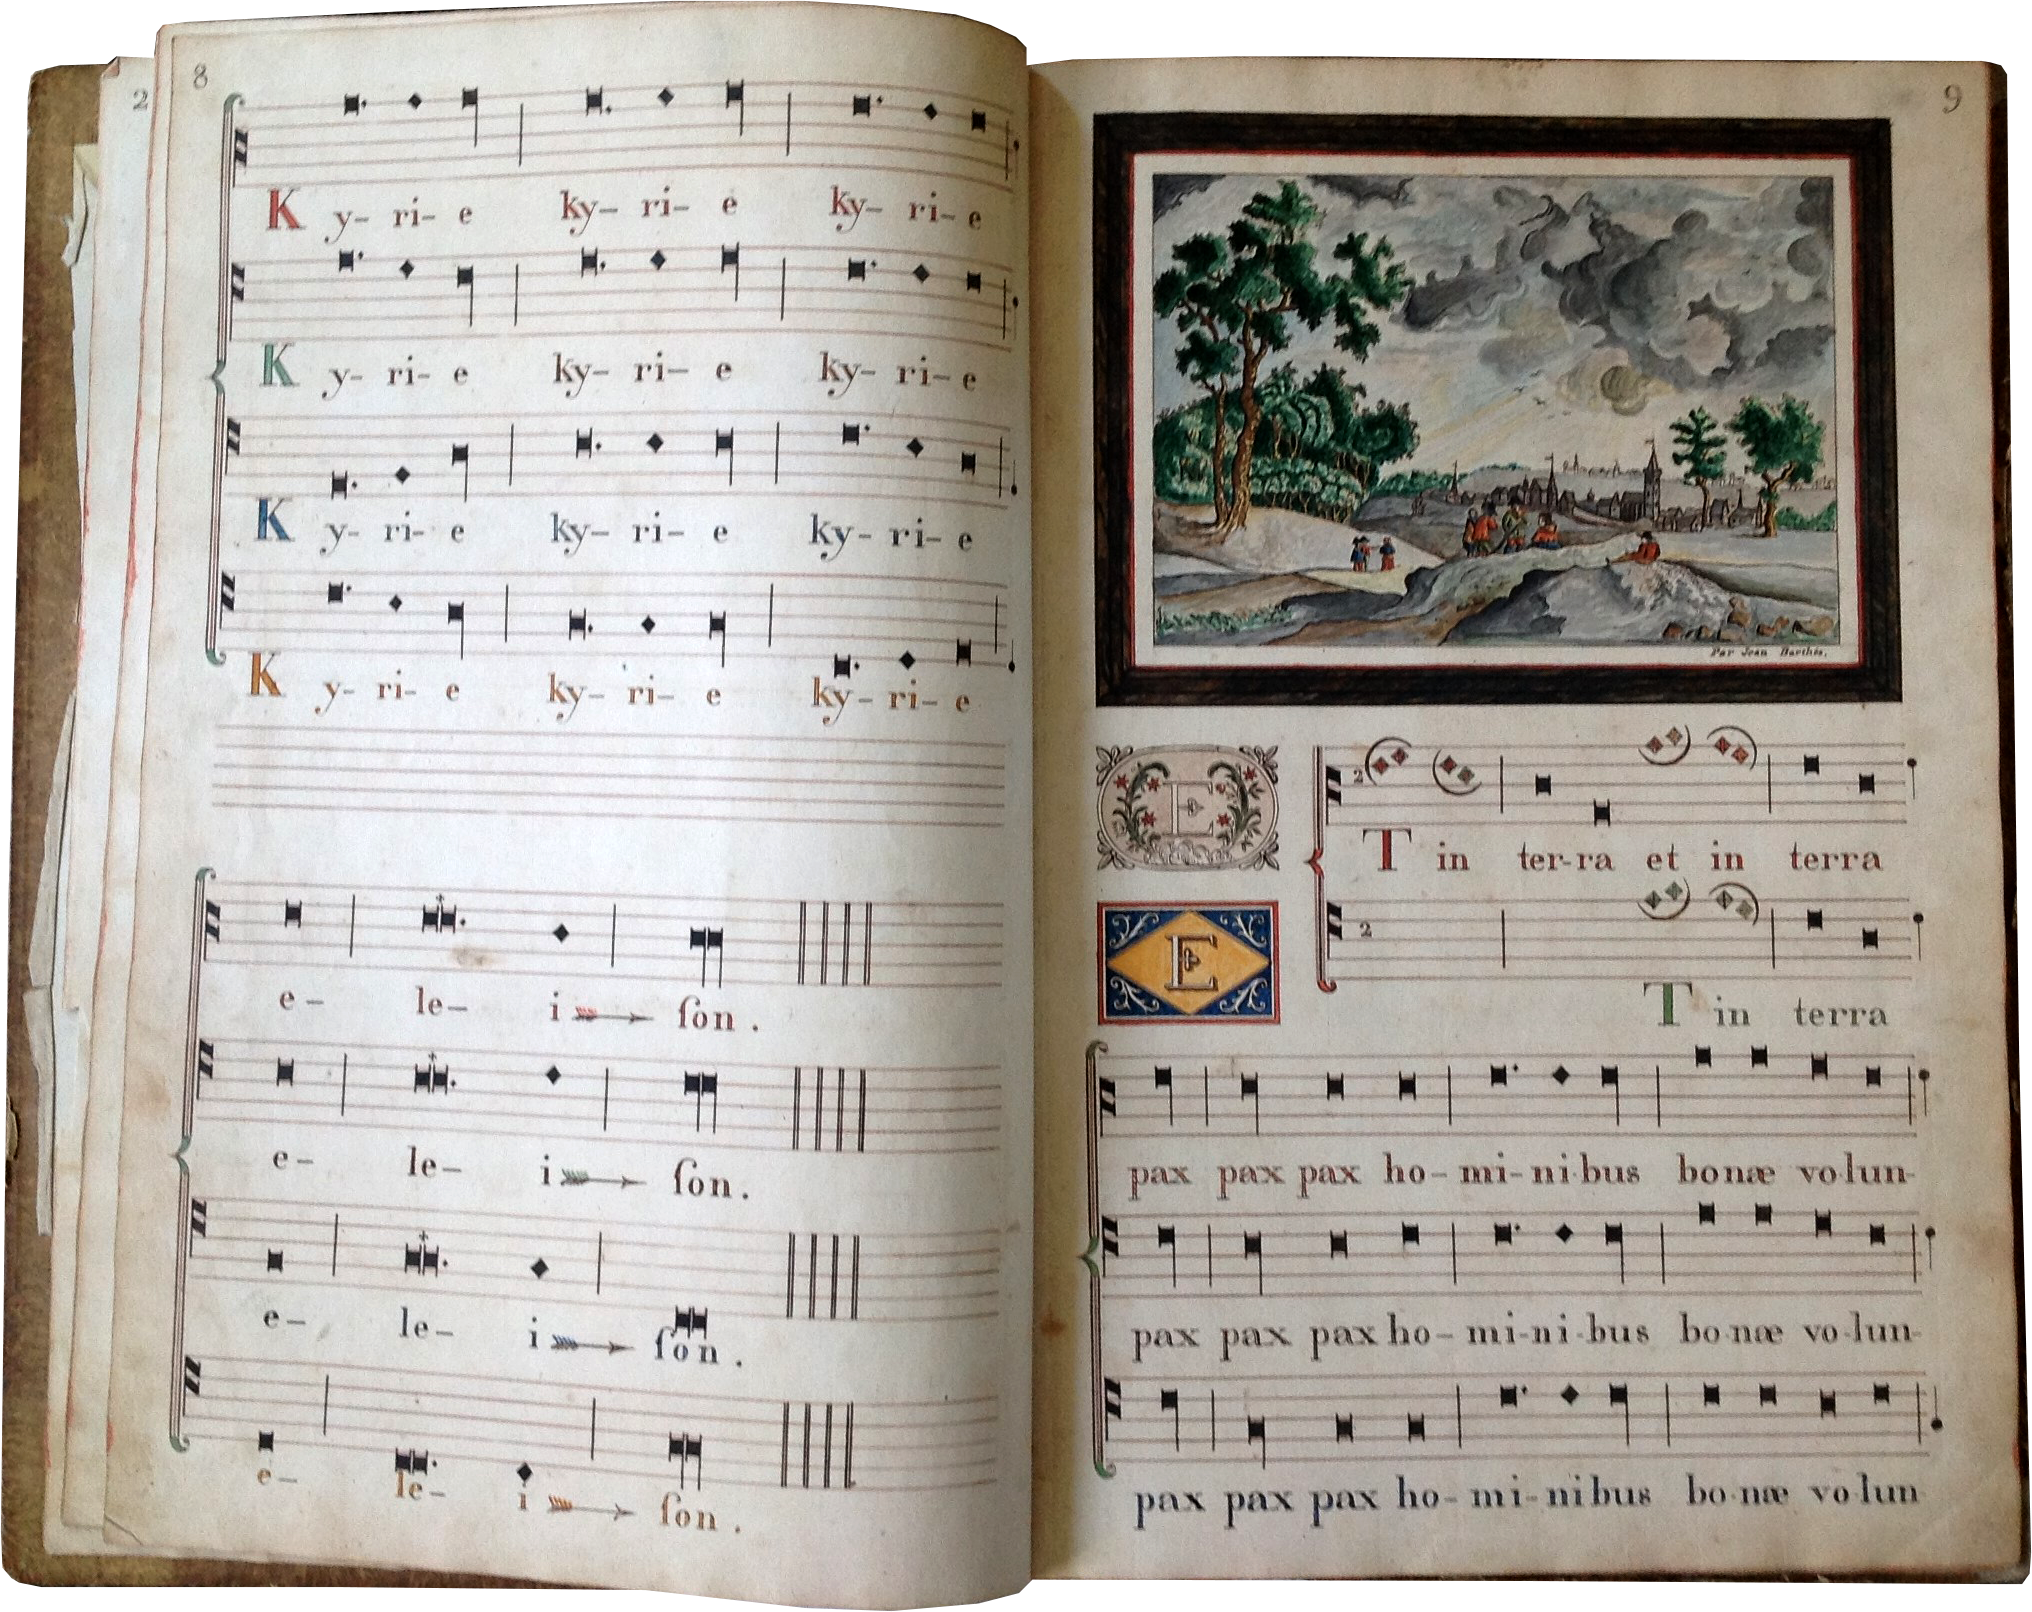 2
8
K y- ri- e ky- ri- e ky- ri- e
K y- ri- e ky- ri- e ky- ri- e
K y- ri- e ky- ri- e ky- ri- e
K y- ri- e ky- ri- e ky- ri- e
e- le- i ſon.
e- le- i ſon.
e- le- i ſon.
e- le- i ſon.
9
Par Jean Barthés.
2
E T in ter-ra et in terra
2
E T in terra
pax pax pax ho-mi-ni-bus bonæ vo-lun-
pax pax pax ho-mi-ni-bus bo-næ vo-lun-
pax pax pax ho-mi-nibus bo-næ vo-lun